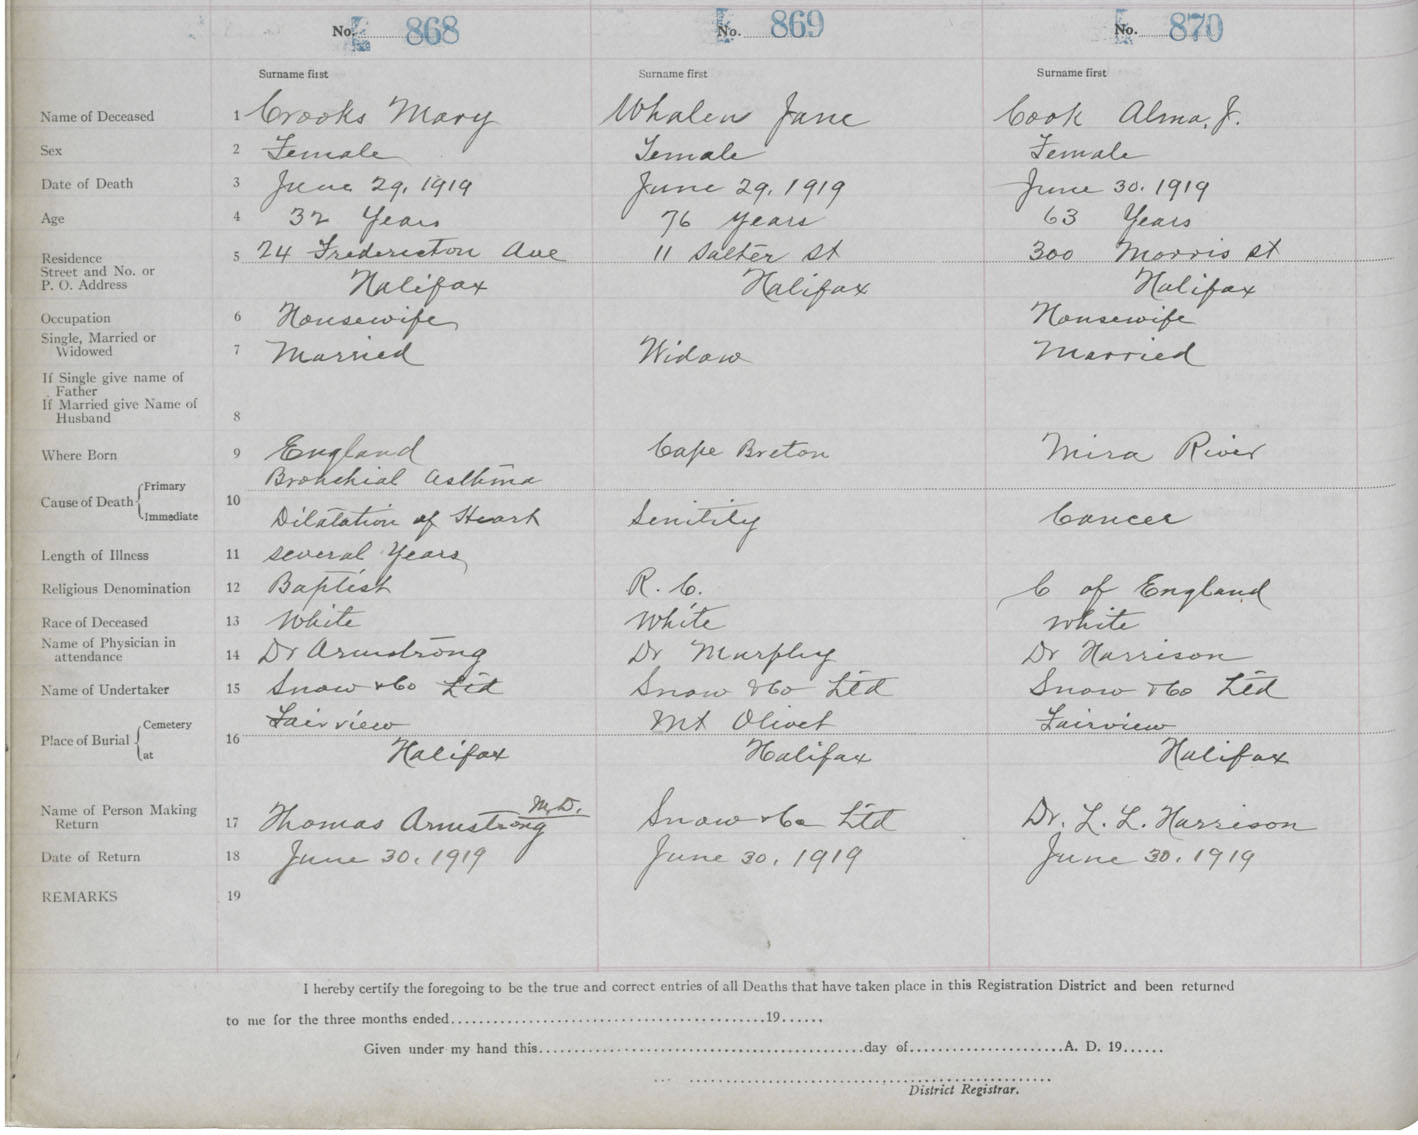 No. 868 No. 869 No. 870
Surname first Surname first Surname first
Name of Deceased 1 Crooks Mary Whalen Jane Cook Alma, J.
Sex 2 Female Female Female
Date of Death 3 June 29, 1919 June 29, 1919 June 30, 1919
Age 4 32 Years 76 Years 63 Years
Residence 5 24 Fredericton Ave 11 Salter St 300 Morris St
Street and No. or
P. O. Address Halifax Halifax Halifax
Occupation 6 Housewife Housewife
Single, Married or
Widowed 7 Married Widow Married
If Single give name of
Father
If Married give Name of
Husband 8
Where Born 9 England Cape Breton Mira River
Cause of Death Primary 10 Bronchial Asthma
Immediate Dilatation of Heart Senitity Cancer
Length of Illness 11 several Years
Religious Denomination 12 Baptist R. C. C of England
Race of Deceased 13 White White White
Name of Physician in
attendance 14 Dr Armstrong Dr Murphy Dr Harrison
Name of Undertaker 15 Snow & Co Ltd Snow & Co Ltd Snow & Co Ltd
Place of Burial Cemetery 16 Fairview Mt Olivet Fairview
at Halifax Halifax Halifax
Name of Person Making
Return 17 Thomas Armstrong M.D. Snow & Co Ltd Dr. L. L. Harrison
Date of Return 18 June 30, 1919 June 30, 1919 June 30, 1919
REMARKS 19
I hereby certify the foregoing to be the true and correct entries of all Deaths that have taken place in this Registration District and been returned
to me for the three months ended 19
Given under my hand this day of A. D. 19
District Registrar.